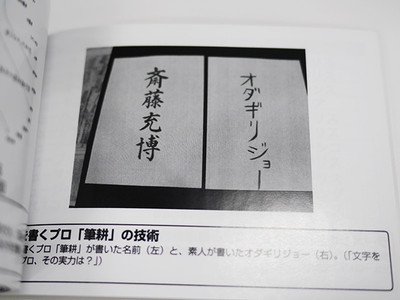 斎藤充博
オダギリジョー
書くプロ「筆耕」の技術
書くプロ「筆耕」が書いた名前（左）と、素人が書いたオダギリジョー（右）。（「文字を
プロ、その実力は？」）